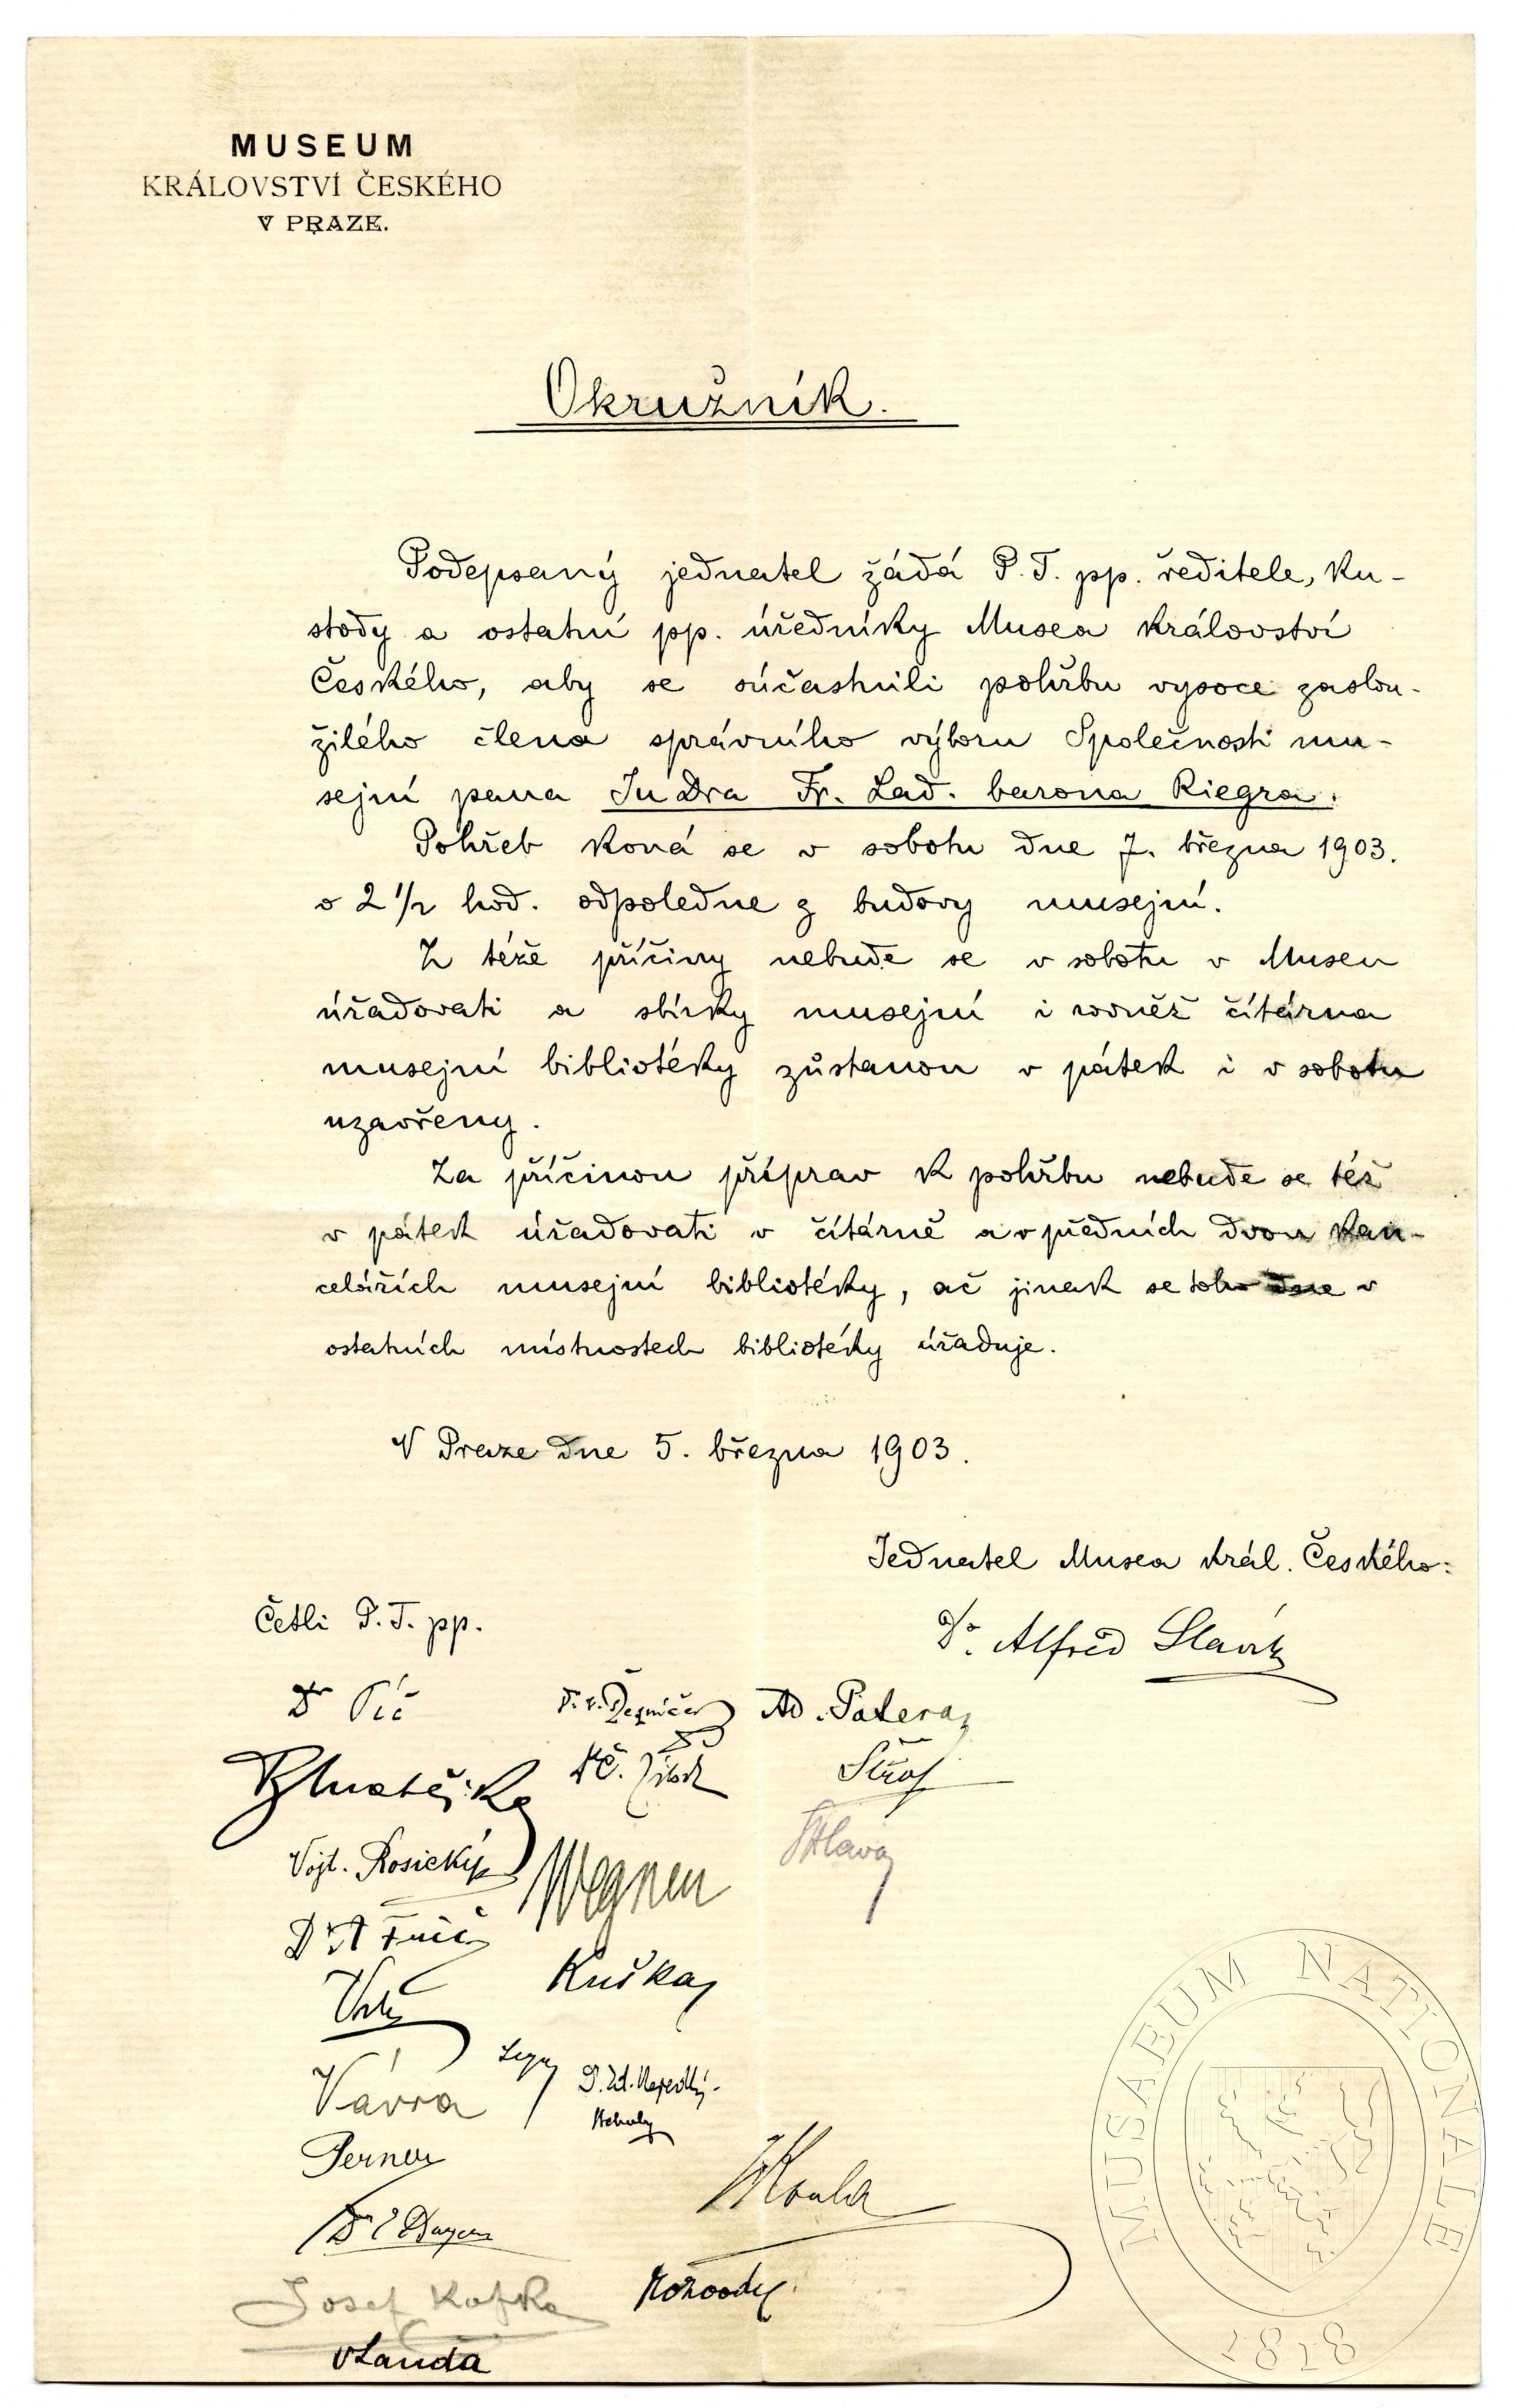 MUSEUM
KRÁLOVSTVÍ ČESKÉHO
V PRAZE.
Okružník.
Podepsaný jednatel žádá P. T. pp. ředitele, ku-
stody a ostatní pp. úředníky Musea království
Českého, aby se súčastnili pohřbu vysoce zaslou-
žilého člena správního výboru Společnosti mu-
sejní pana JuDra Fr. Lad. barona Riegra.
Pohřeb koná se v sobotu dne 7. března 1903.
o 2 1/2 hod. odpoledne z budovy musejní.
Z téže příčiny nebude se v sobotu v Museu
úřadovati a sbírky musejní i rovněž čítárna
musejní bibliotéky zůstanou v pátek i v sobotu
uzavřeny.
Za příčinou příprav k pohřbu nebude se též
v pátek úřadovati v čítárně a v předních dvou kan-
celářích musejní bibliotéky, ač jinak se toho dne v
ostatních místnostech bibliotéky úřaduje.
V Praze dne 5. března 1903.
Jednatel Musea král. Českého:
Dr. Alfred Slavík
Četli P. T. pp.
Dr Píč
Řezníček
Ad. Patera
Č. Zíbrt
Vojt. Rosický
Wegner
Hlava
Dr A Frič
Kuška
Vrba
Vávra
Dr. Zd. Nejedlý
Perner
Dr E Bayer
Koula
Josef Kafka
Nohovody
V Landa
MUSAEUM NATIONALE
1818